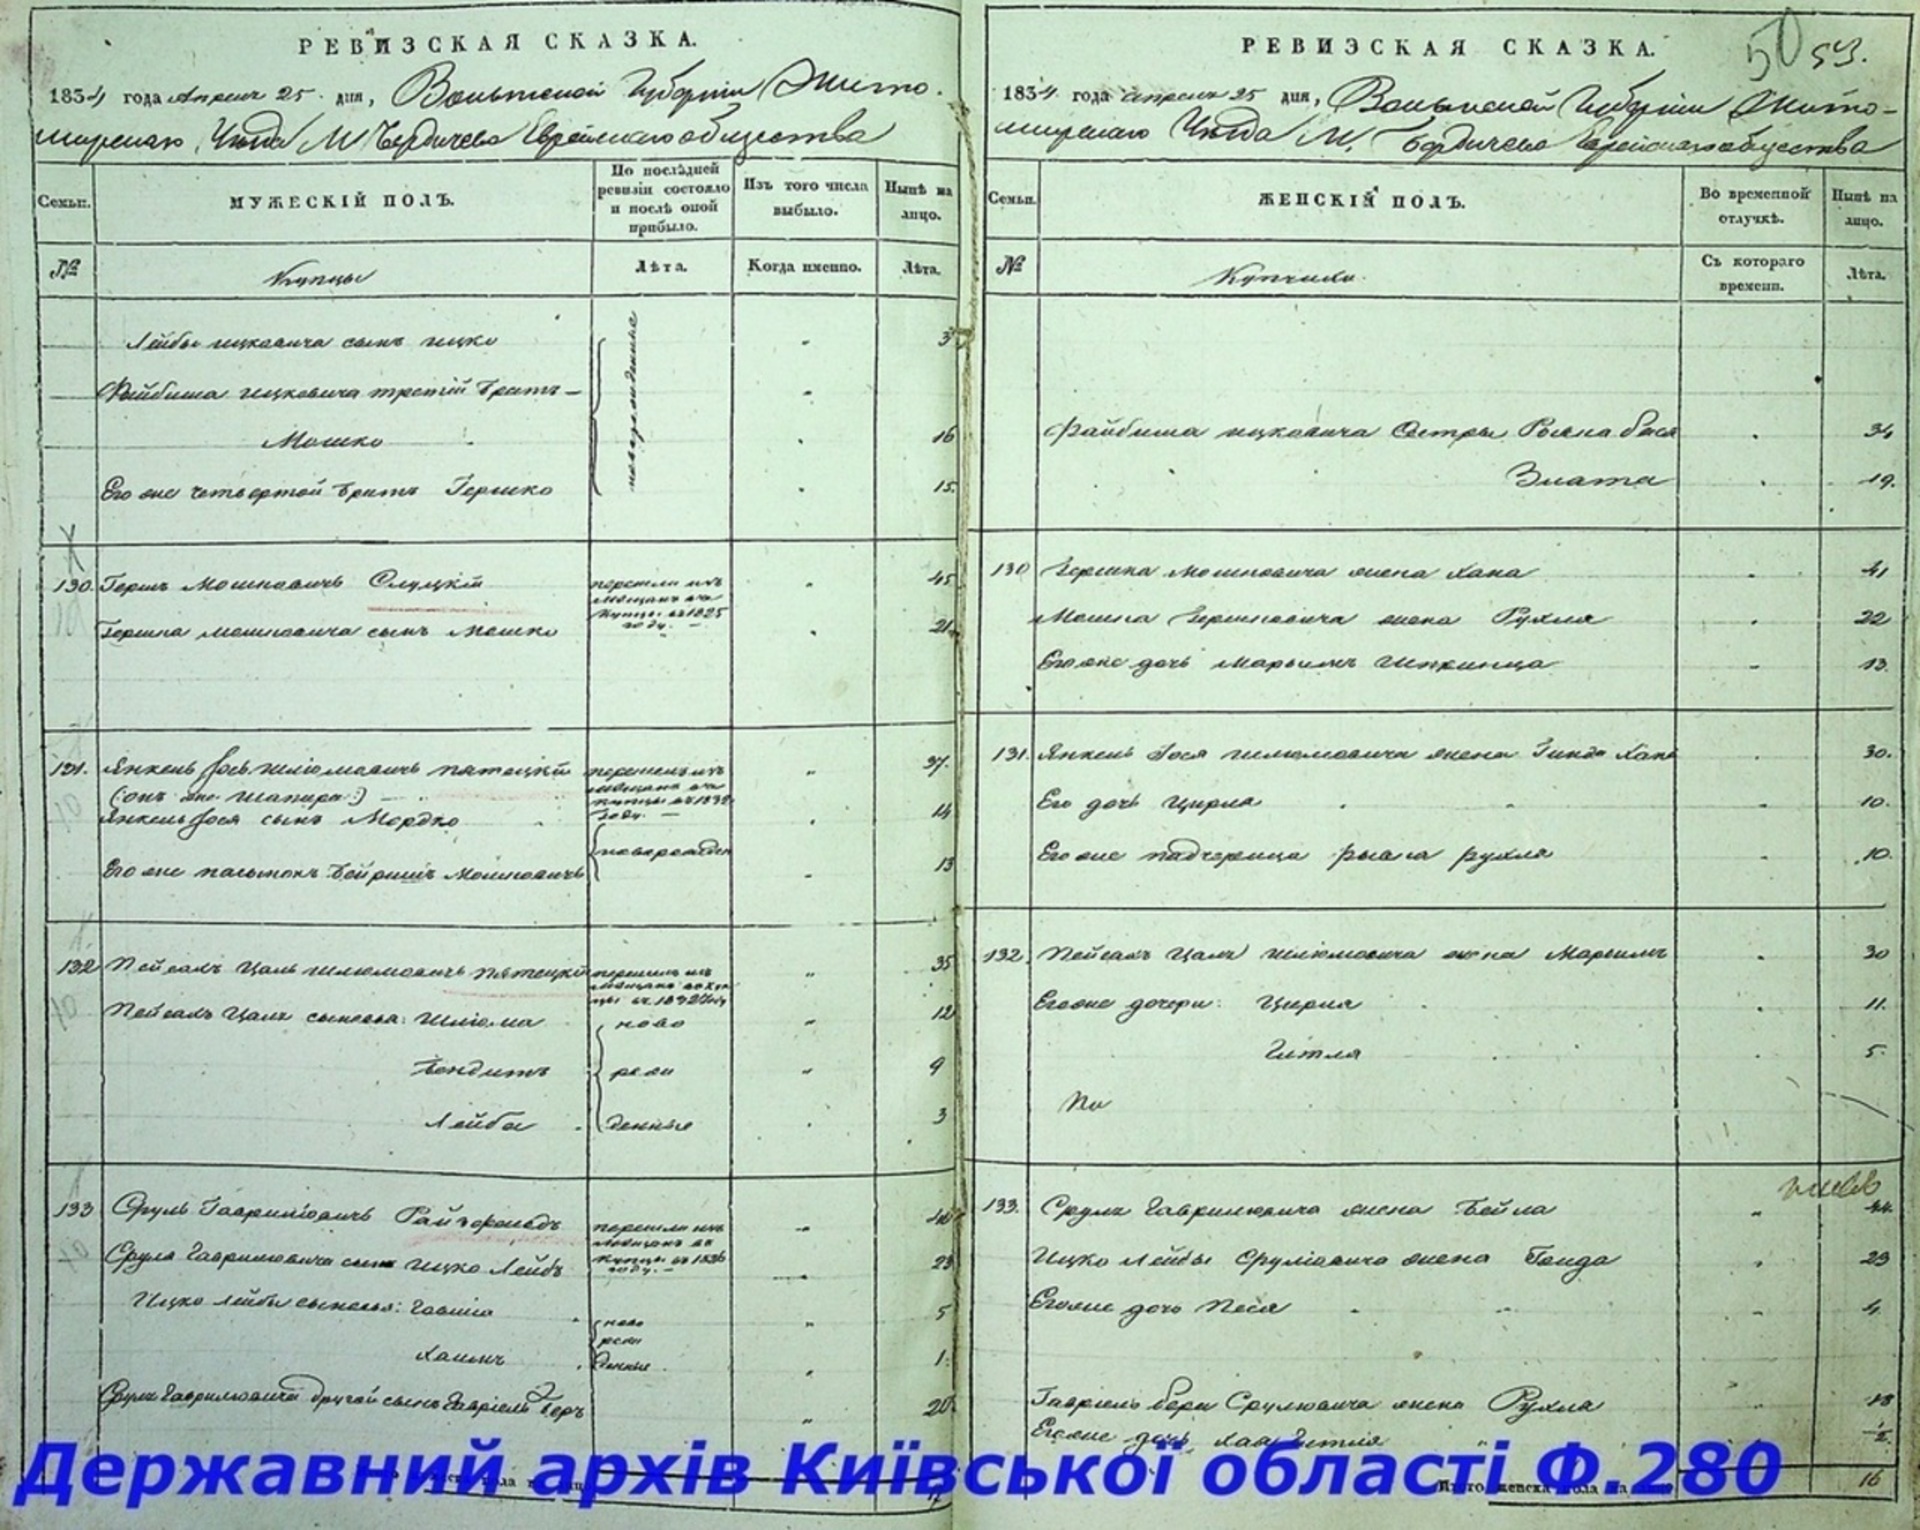 РЕВИЗСКАЯ СКАЗКА.
1834 года Апреля 25 дня, Волынской Губерніи Жито-
мирскаго Уезда М Бердичева Еврейскаго общества
Семьи.
МУЖЕСКІЙ ПОЛЪ.
По последней ревизіи состояло и после оной прибыло.
Изъ того числа выбыло.
Ныне на лицо.
№
Купцы
Лета.
Когда именно.
Лета.
Лейбы ицковича сынъ ицко 3
Файбиша ицковича третій братъ —
Мошко 16
Его же четвертой братъ Гершко 15.
новорожденные
130. Гершъ Мошковичъ Слуцкій перешли изъ мещанъ въ купцы въ 1825 году. — 45
Гершка мошковича сынъ Мошко 21
131. Янкель Іось шліомовичъ пятецкій перешелъ изъ мещанъ въ купцы въ 1832 году. — 37.
(:онъ же Шапира:)
Янкель Іося сынъ Мордко 14
Его же пасынокъ Бейришъ Мошковичъ новорожден 13
132 Пейсахъ Цаль шліомовичъ пятецкій перешелъ изъ мещанъ въ купцы въ 1832 году 35
Пейсахъ Цаль сыновья: Шліома ново 12
Бендитъ рож 9
Лейба денные 3
133 Сруль Гаврилювичъ Райгородъ перешли изъ мещанъ въ купцы въ году. —
Сруля Гаврилювича сынъ Ицко Лейбъ 23
Ицко Лейбы сыновья: Гавшіо ново 5
рож
Хаимъ денные 1
Сруль Гаврилювича другой сынъ Гавріель Беръ 20
РЕВИЗСКАЯ СКАЗКА.
50 53.
1834 года апреля 25 дня, Волынской Губерніи Жито-
мирскаго Уезда М. Бердичева Еврейскаго общества
Семьи.
ЖЕНСКІЙ ПОЛЪ.
Во временной отлучке.
Ныне на лицо.
№
Купчихи.
Съ котораго времени.
Лета.
Файбиша ицковича Сестры Бася 34
Злата 19.
130 Гершка Мошковича жена Хана 41
Мошка Гершковича жена Рухля 22
Его же дочь Марьямъ Шпринца 13.
131. Янкель Іося шліомовича жена Гинда Хана 30.
Его дочь Цирла 10.
Его же падчерица рухля 10.
132. Пейсахъ Цаль шліомовича жена Марьямъ 30
Его же дочери: Цирля 11.
Гитля 5.
133. Сруль Гаврилювича жена Бейла 44.
Ицко Лейбы Сруліовича жена 23
Его же дочь Песя 4
Гавріель бера Срулювича жена Рухля 18
Его же дочь хая Гитля 1/2
Итого женска пола на лицо 16
Державний архів Київської області Ф.280